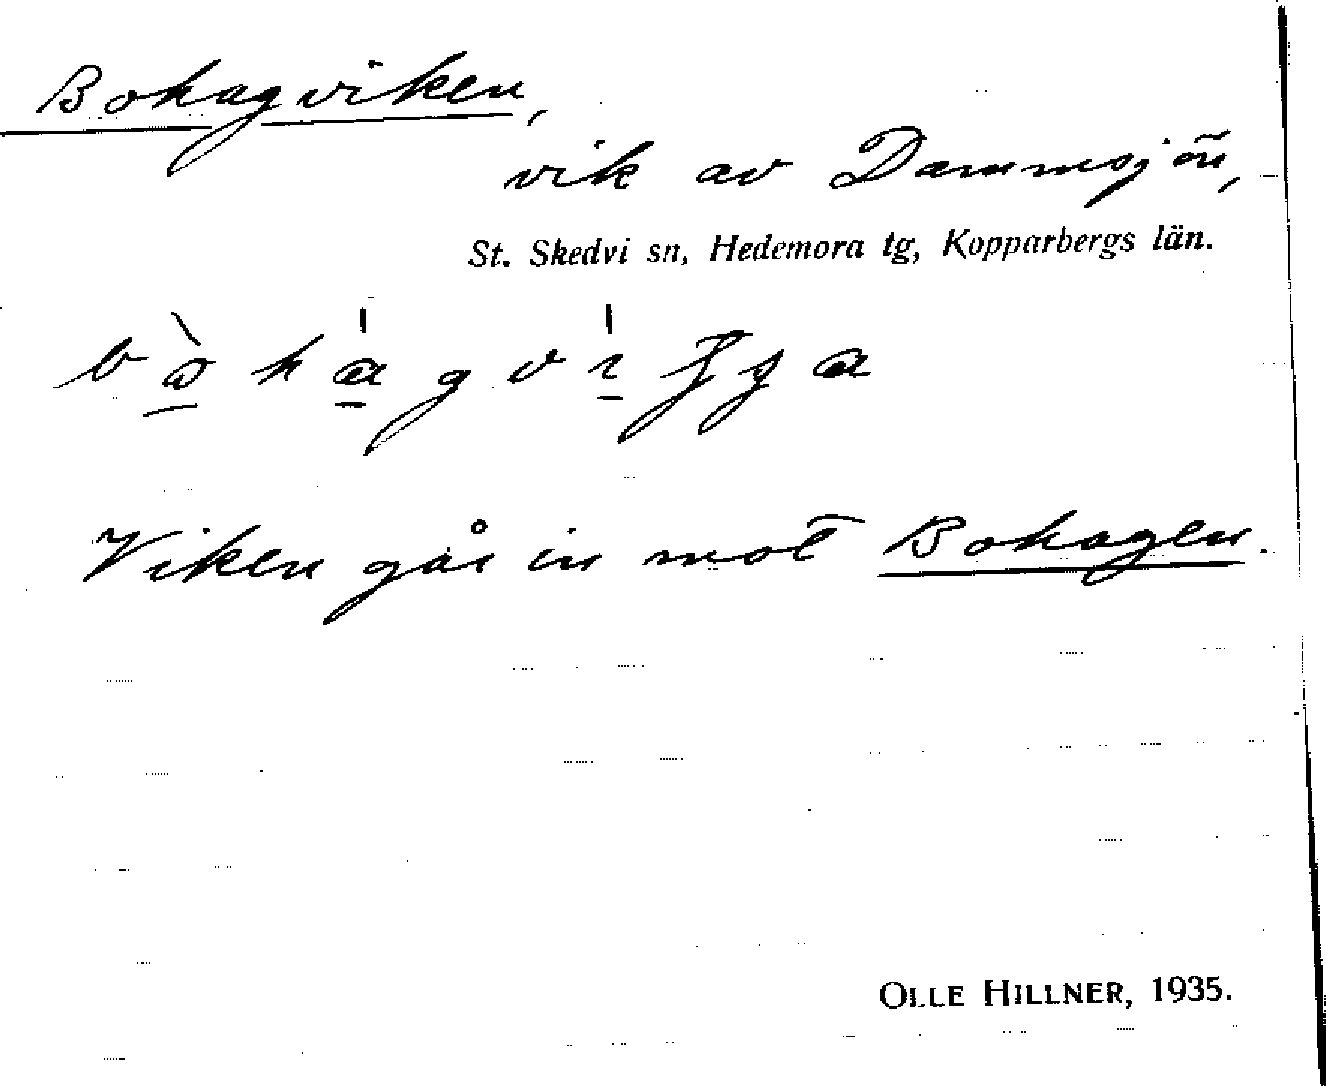 Bohagviken,
vik av Dammsjön,
St. Skedvi sn, Hedemora tg, Kopparbergs län.
Viken går in mot Bohagen.
OLLE HILLNER, 1935.